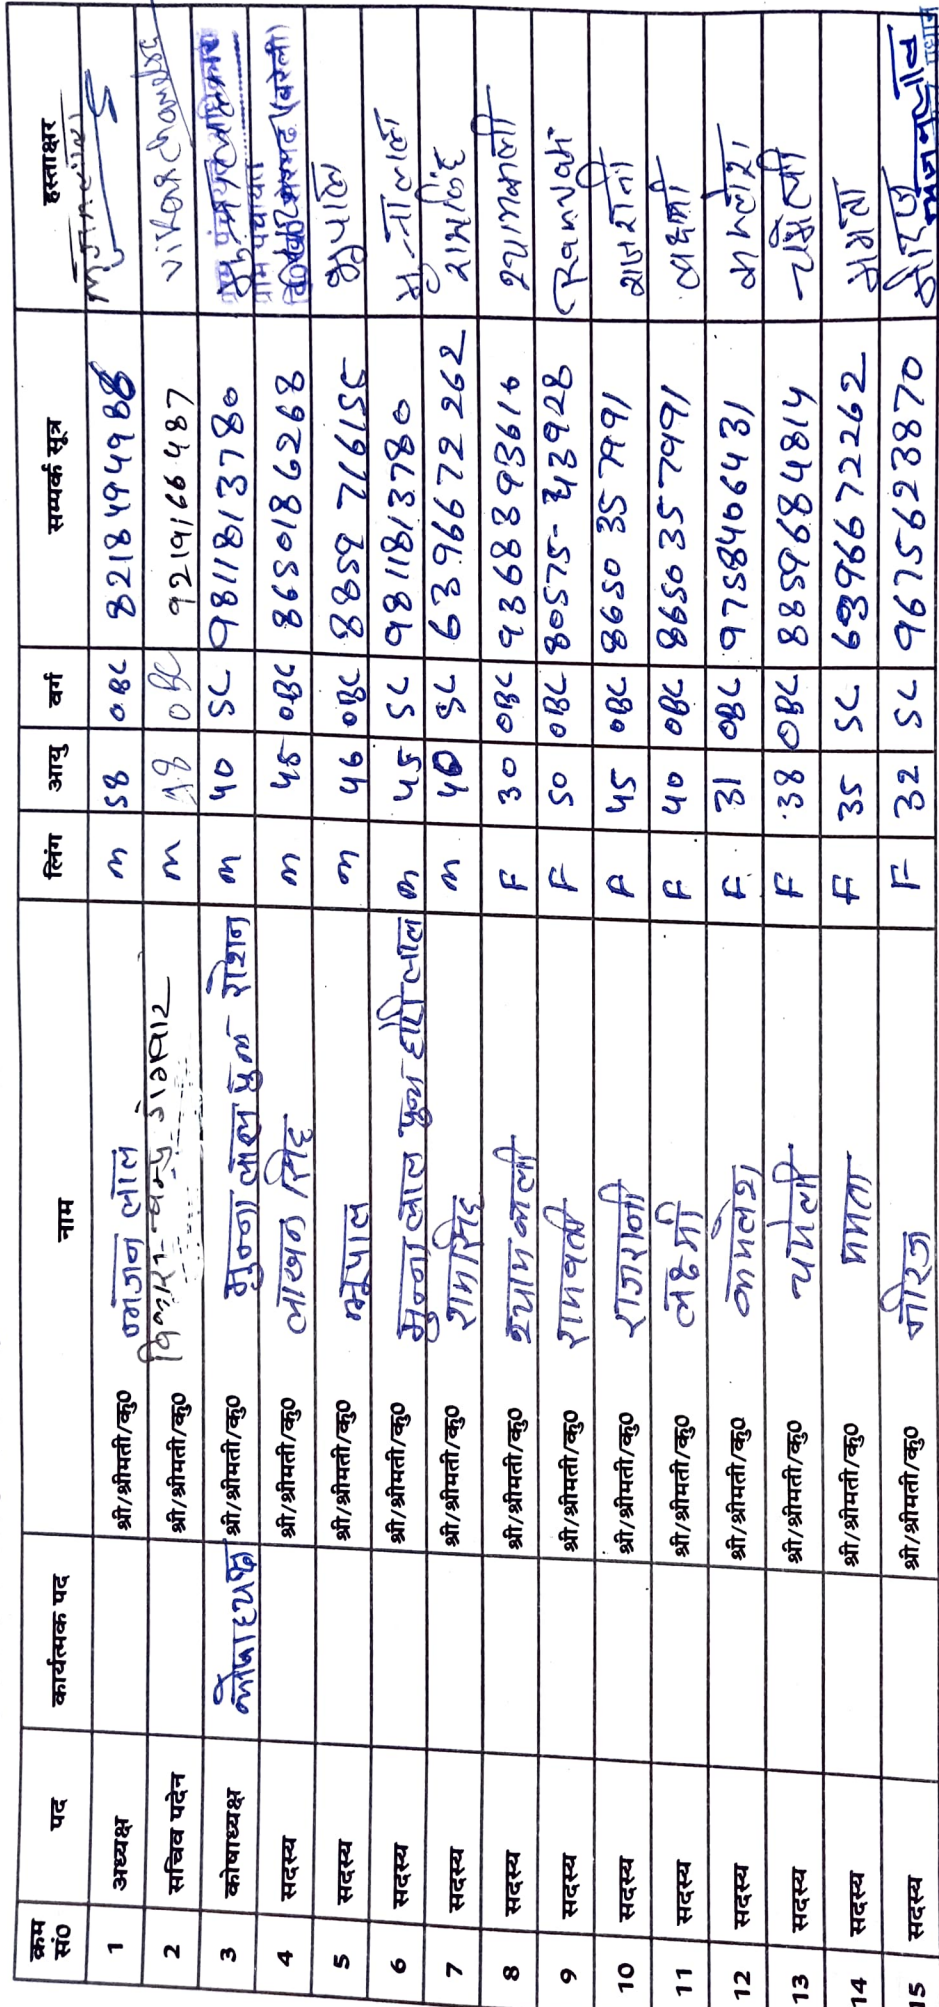 क्रम सं0 पद कार्यत्मक पद नाम लिंग आयु वर्ग सम्पर्क सूत्र हस्ताक्षर
1 अध्यक्ष श्री/श्रीमती/कु0 लाल M 58 OBC
2 सचिव पदेन श्री/श्रीमती/कु0 M OBC 9219166487 Vikash Chandra
3 कोषाध्यक्ष कोषाध्यक्ष श्री/श्रीमती/कु0 मुन्ना लाल पुत्र रोशन M 40 SC 9811813780
4 सदस्य श्री/श्रीमती/कु0 लाखन सिंह M 45 OBC 8650186268
5 सदस्य श्री/श्रीमती/कु0 भूपाल M 46 OBC 8859716155 भूपाल
6 सदस्य श्री/श्रीमती/कु0 मुन्ना लाल पुत्र लाल M 45 SC 9811813780 मुन्नालाल
7 सदस्य श्री/श्रीमती/कु0 रामसिंह M 40 SC 6396672262 रामसिंह
8 सदस्य श्री/श्रीमती/कु0 श्यामकली F 30 OBC 9368393616 श्यामकली
9 सदस्य श्री/श्रीमती/कु0 रामवती F 50 OBC 80575-43928
10 सदस्य श्री/श्रीमती/कु0 राजरानी F 45 OBC 8650357991 राजरानी
11 सदस्य श्री/श्रीमती/कु0 लक्ष्मी F 40 OBC 8650357991 लक्ष्मी
12 सदस्य श्री/श्रीमती/कु0 कमलेश F 31 OBC 9758466431 कमलेश
13 सदस्य श्री/श्रीमती/कु0 चमेली F 38 OBC 8859684814 चमेली
14 सदस्य श्री/श्रीमती/कु0 ममता F 35 SC 6396672262 ममता
15 सदस्य श्री/श्रीमती/कु0 नीरज F 32 SC 9675623870